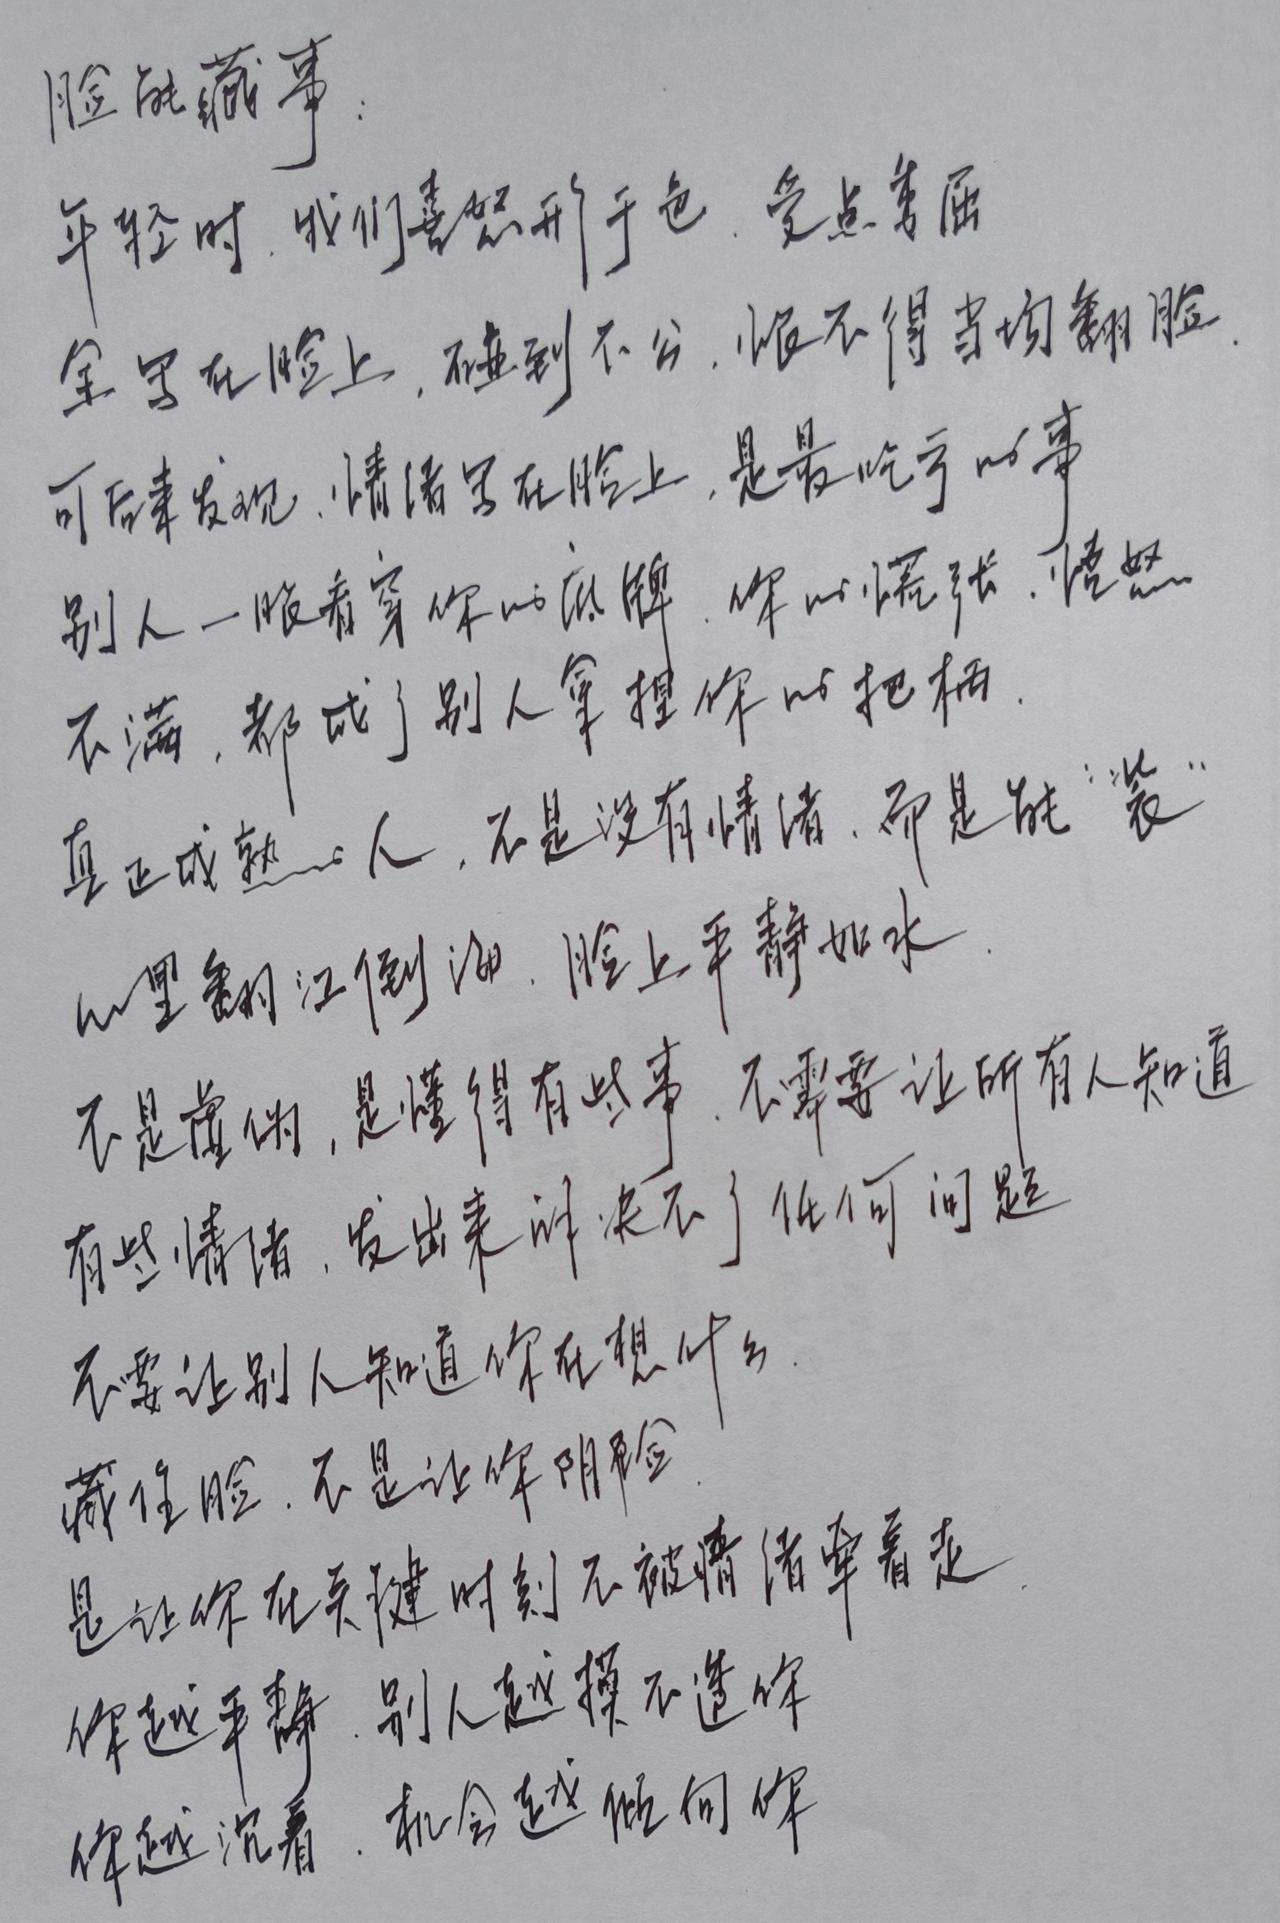 脸能藏事：
年轻时，我们喜怒形于色，受点委屈
全写在脸上，碰到不公，恨不得当场翻脸，
可后来发现，情绪写在脸上，是最吃亏的事
别人一眼看穿你的底牌，你的慌张，愤怒
不满，都成了别人拿捏你的把柄，
真正成熟的人，不是没有情绪，而是能“装”
心里翻江倒海，脸上平静如水，
不是虚伪，是懂得有些事，不需要让所有人知道
有些情绪，发出来解决不了任何问题
不要让别人知道你在想什么，
藏住脸，不是让你阴险，
是让你在关键时刻不被情绪牵着走，
你越平静，别人越摸不透你
你越沉着，机会越倾向你